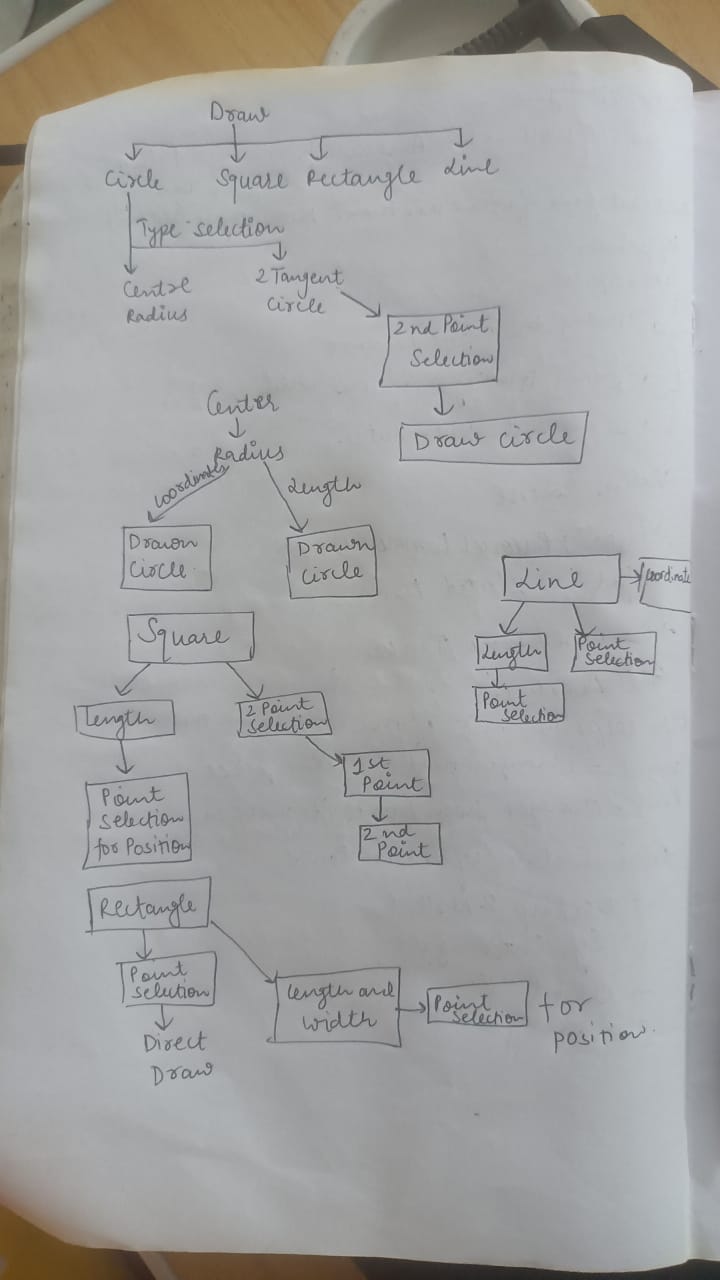 Draw
Circle Square Rectangle Line
Type selection
Centre
Radius
2 Tangent
Circle
2nd Point
Selection
Draw circle
Center
Radius
coordinates
Length
Drawn
Circle
Drawn
Circle
Line
coordinate
Length
Point
Selection
Point
Selection
Square
Length
2 Point
Selection
Point
Selection
for Position
1st
Point
2nd
Point
Rectangle
Point
selection
Direct
Draw
Length and
width
Point
Selection
for
position